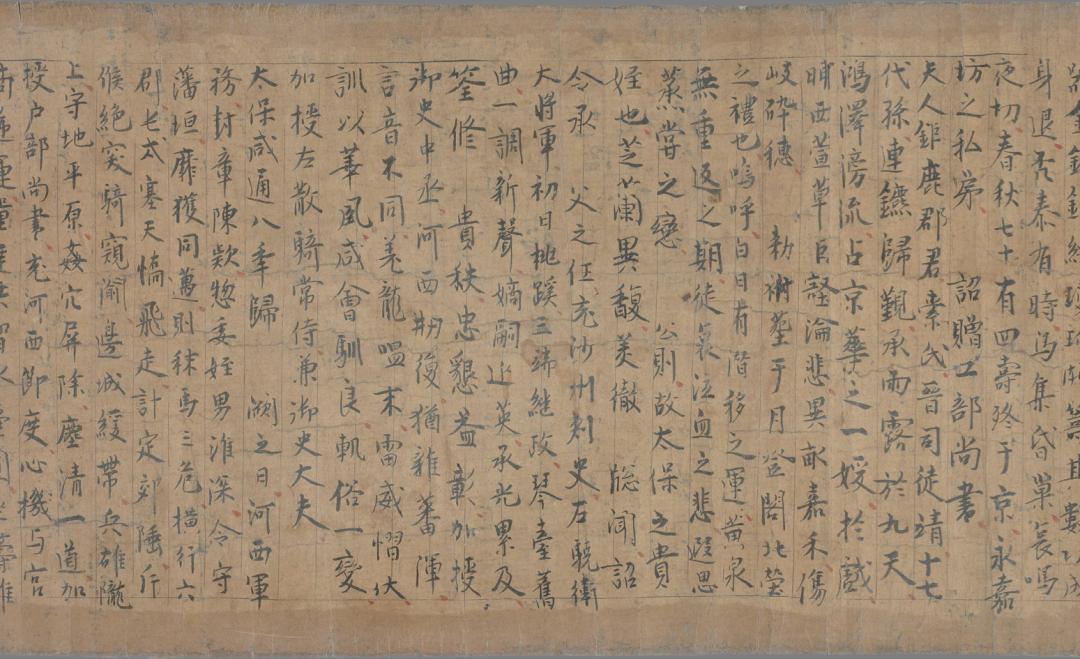 身退否泰有時烏集昏巢哀鳴
夜切春秋七十有四壽終于京永嘉
坊之私弟 詔贈工部尚書
夫人鉅鹿郡君索氏晉司徒靖十七
代孫連鑣歸覲承雨露於九天
鴻澤滂流占京華之一媛於戲
晡西萱草巨壑淪悲異畝嘉禾傷
岐碎穗 勅祔塟于月登閣北塋
之禮也嗚呼白日有潛移之運黃泉
無重返之期徒哀泣血之悲遐思
蒸嘗之戀 公則故太保之貴
姪也芝蘭異馥美徹 聽聞詔
令承 父之任充沙州刺史左驍衛
大將軍初日桃蹊三端繼政琴臺舊
曲一調新聲嫡嗣延英承光累及
筌修 貴秩忠懇益彰加授
御史中丞河西刱復猶雜蕃渾
言音不同羌龍嗢末雷威慴伏
訓以華風咸會馴良軌俗一變
加授左散騎常侍兼御史大夫
太保咸通八年歸 闕之日河西軍
務封章陳欵惣委姪男淮深令守
藩垣靡獲同邁則秣馬三危橫行六
郡屯戍塞天憍飛走計定郊陲斥
候絕突騎窺窬邊城緩帶兵雄隴
上守地平原姦宄屏除塵清一道加
授户部尚書充河西節度心機与宮